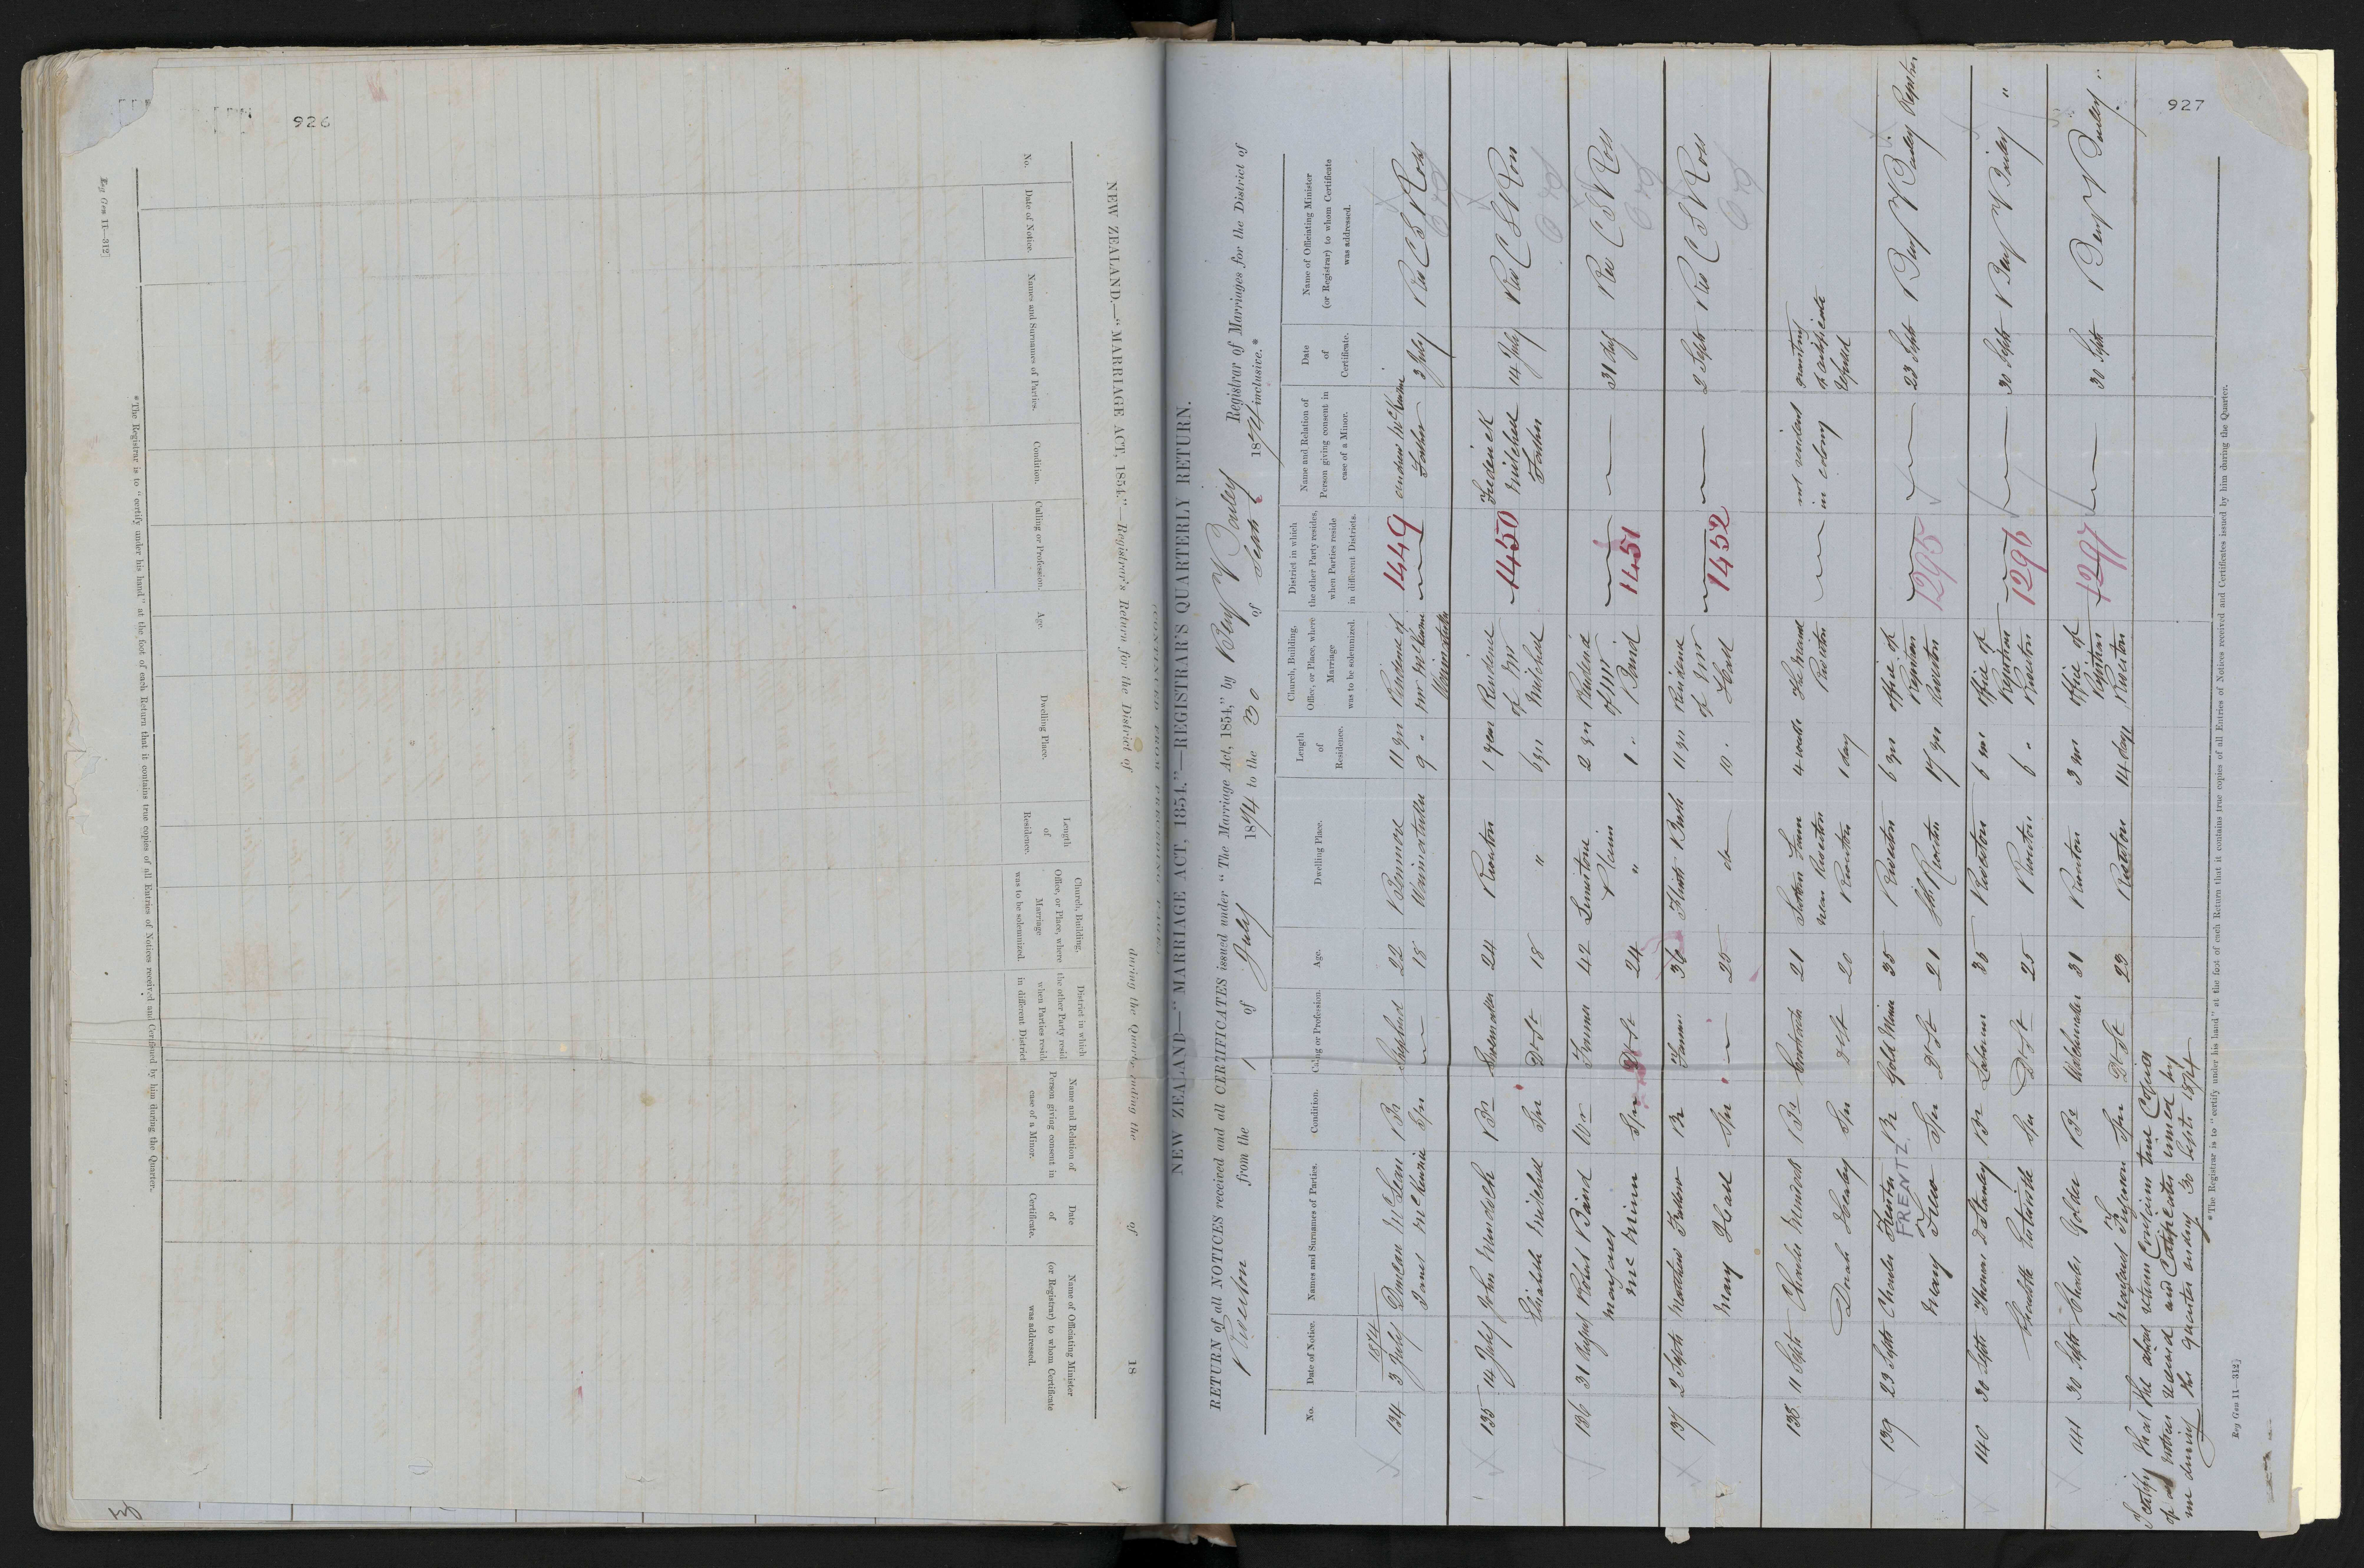 926
No.
Date of Notice.
Names and Surnames of Parties.
Condition.
Calling or Profession.
Age.
Dwelling Place.
Length of Residence.
Church, Building, Office, or Place, where Marriage was to be solemnized.
District in which the other Party resid when Parties reside in different District
Name and Relation of Person giving consent in case of a Minor.
Date of Certificate.
Name of Officiating Minister (or Registrar) to whom Certificate was addressed.
NEW ZEALAND.—"MARRIAGE ACT, 1854."—Registrar's Return for the District of during the Quarter ending the of 18
* The Registrar is to "certify under his hand" at the foot of each Return that it contains true copies of all Entries of Notices received and Certificates issued by him during the Quarter.
Reg Gen 11—312]
927
NEW ZEALAND—"MARRIAGE ACT, 1854."—REGISTRAR'S QUARTERLY RETURN.
RETURN of all NOTICES received and all CERTIFICATES issued under "The Marriage Act, 1854," by Benj Bailey Registrar of Marriages for the District of
Riverton from the 1 of July 1874 to the 30 of Septr 1874 inclusive.*
No.
Date of Notice.
Names and Surnames of Parties.
Condition.
Calling or Profession.
Age.
Dwelling Place.
Length of Residence.
Church, Building, Office, or Place, where Marriage was to be solemnized.
District in which the other Party resides, when Parties reside in different Districts.
Name and Relation of Person giving consent in case of a Minor.
Date of Certificate.
Name of Officiating Minister (or Registrar) to whom Certificate was addressed.
1874
134 3 July Duncan McLean Br Shepherd 22 Benmore 11 yrs Residence of 1449 Andrew McKenzie 3 July Rev C S Ross
McKenzie Spr 18 Waimatuku 9 " Mr McKenzie Father
Waimatuku
135 14 July John Br 24 Riverton 1 year Residence 1450 Frederick 14 July Rev C S Ross
Elizabeth Mitchell Spr D-st 18 " 6 yrs of Mr Mitchell Mitchell Father
136 31 August Robert Baird Wr Farmer 42 Limestone Plain 2 yrs Residence 1451 31 Rev C S Ross
Margaret Spr D-st 24 " 1 " of Mr Baird
137 2 Septr Matthew Br Farmer 36 Flints Bush 11 yrs Residence 1452 2 Septr Rev C S Ross
Mary Head Spr 25 do 10 " of Mr Head
138 11 Septr Charles Br 21 near Riverton 4 weeks Riverton not resident in colony
Dinah Healey Spr D-st 20 Riverton 1 day
139 23 Septr Charles Br Gold Miner 35 Riverton 6 yrs office of 1295 23 Septr Benj Bailey Registrar
FRENTZ
Mary Spr D-st 21 Riverton 17 yrs Registrar Riverton
140 30 Septr Thomas Br Labourer 35 Riverton 6 office of 1296 30 Septr Benj Bailey "
Spr D-st 25 Riverton 6 " Registrar Riverton
141 30 Septr Charles Golder Br Watchmaker 31 Riverton 3 office of 1297 30 Septr Benj Bailey "
Margaret Spr D-st 23 Riverton 14 days Registrar Riverton
I certify that the above return contains true Copies
of all notices received and Certificates issued by
me during the quarter ending 30 Septr 1874
* The Registrar is to "certify under his hand" at the foot of each Return that it contains true copies of all Entries of Notices received and Certificates issued by him during the Quarter.
Reg Gen 11—312]